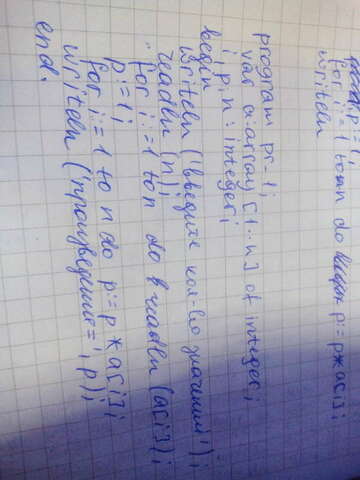 p:=1;
for i:=1 to n do p:=p*a[i];
writeln
program pr-1;
var a:array [1..n] of integer;
i,p,n:integer;
begin
writeln ('введите кол-во значений');
readln (n);
for i:=1 to n do readln (a[i]);
p:=1;
for i:=1 to n do p:=p*a[i];
writeln ('произведение=',p);
end.